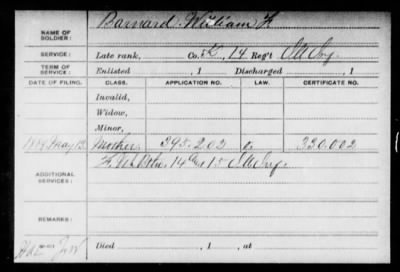 NAME OF SOLDIER: Barnard, William F.
SERVICE: Late rank, Co. 14 Reg't Ill Inf.
TERM OF SERVICE: Enlisted , 1 Discharged , 1
DATE OF FILING. CLASS. APPLICATION NO. LAW. CERTIFICATE NO.
Invalid,
Widow,
Minor,
May 12 Mother, 395.202 330.002
ADDITIONAL SERVICES: 14 15 Ill Inf.
REMARKS:
Died , 1 , at